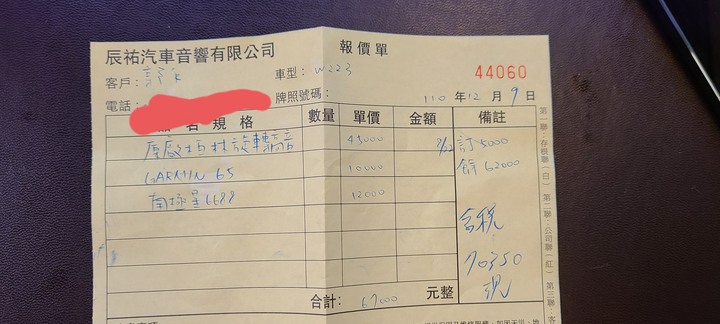 辰祐汽車音響有限公司 報價單
客戶： 車型： W223 44060
電話： 牌照號碼： 110 年 12 月 9 日
品名規格 數量 單價 金額 備註
原廠柏林旋轉高音 45000 8/12 訂5000
GARMIN 65 10000 餘62000
南極星6688 12000
含稅
70350
現
合計： 67000 元整
第一聯：存根聯（白）第二聯：公司聯（紅）第三聯：客